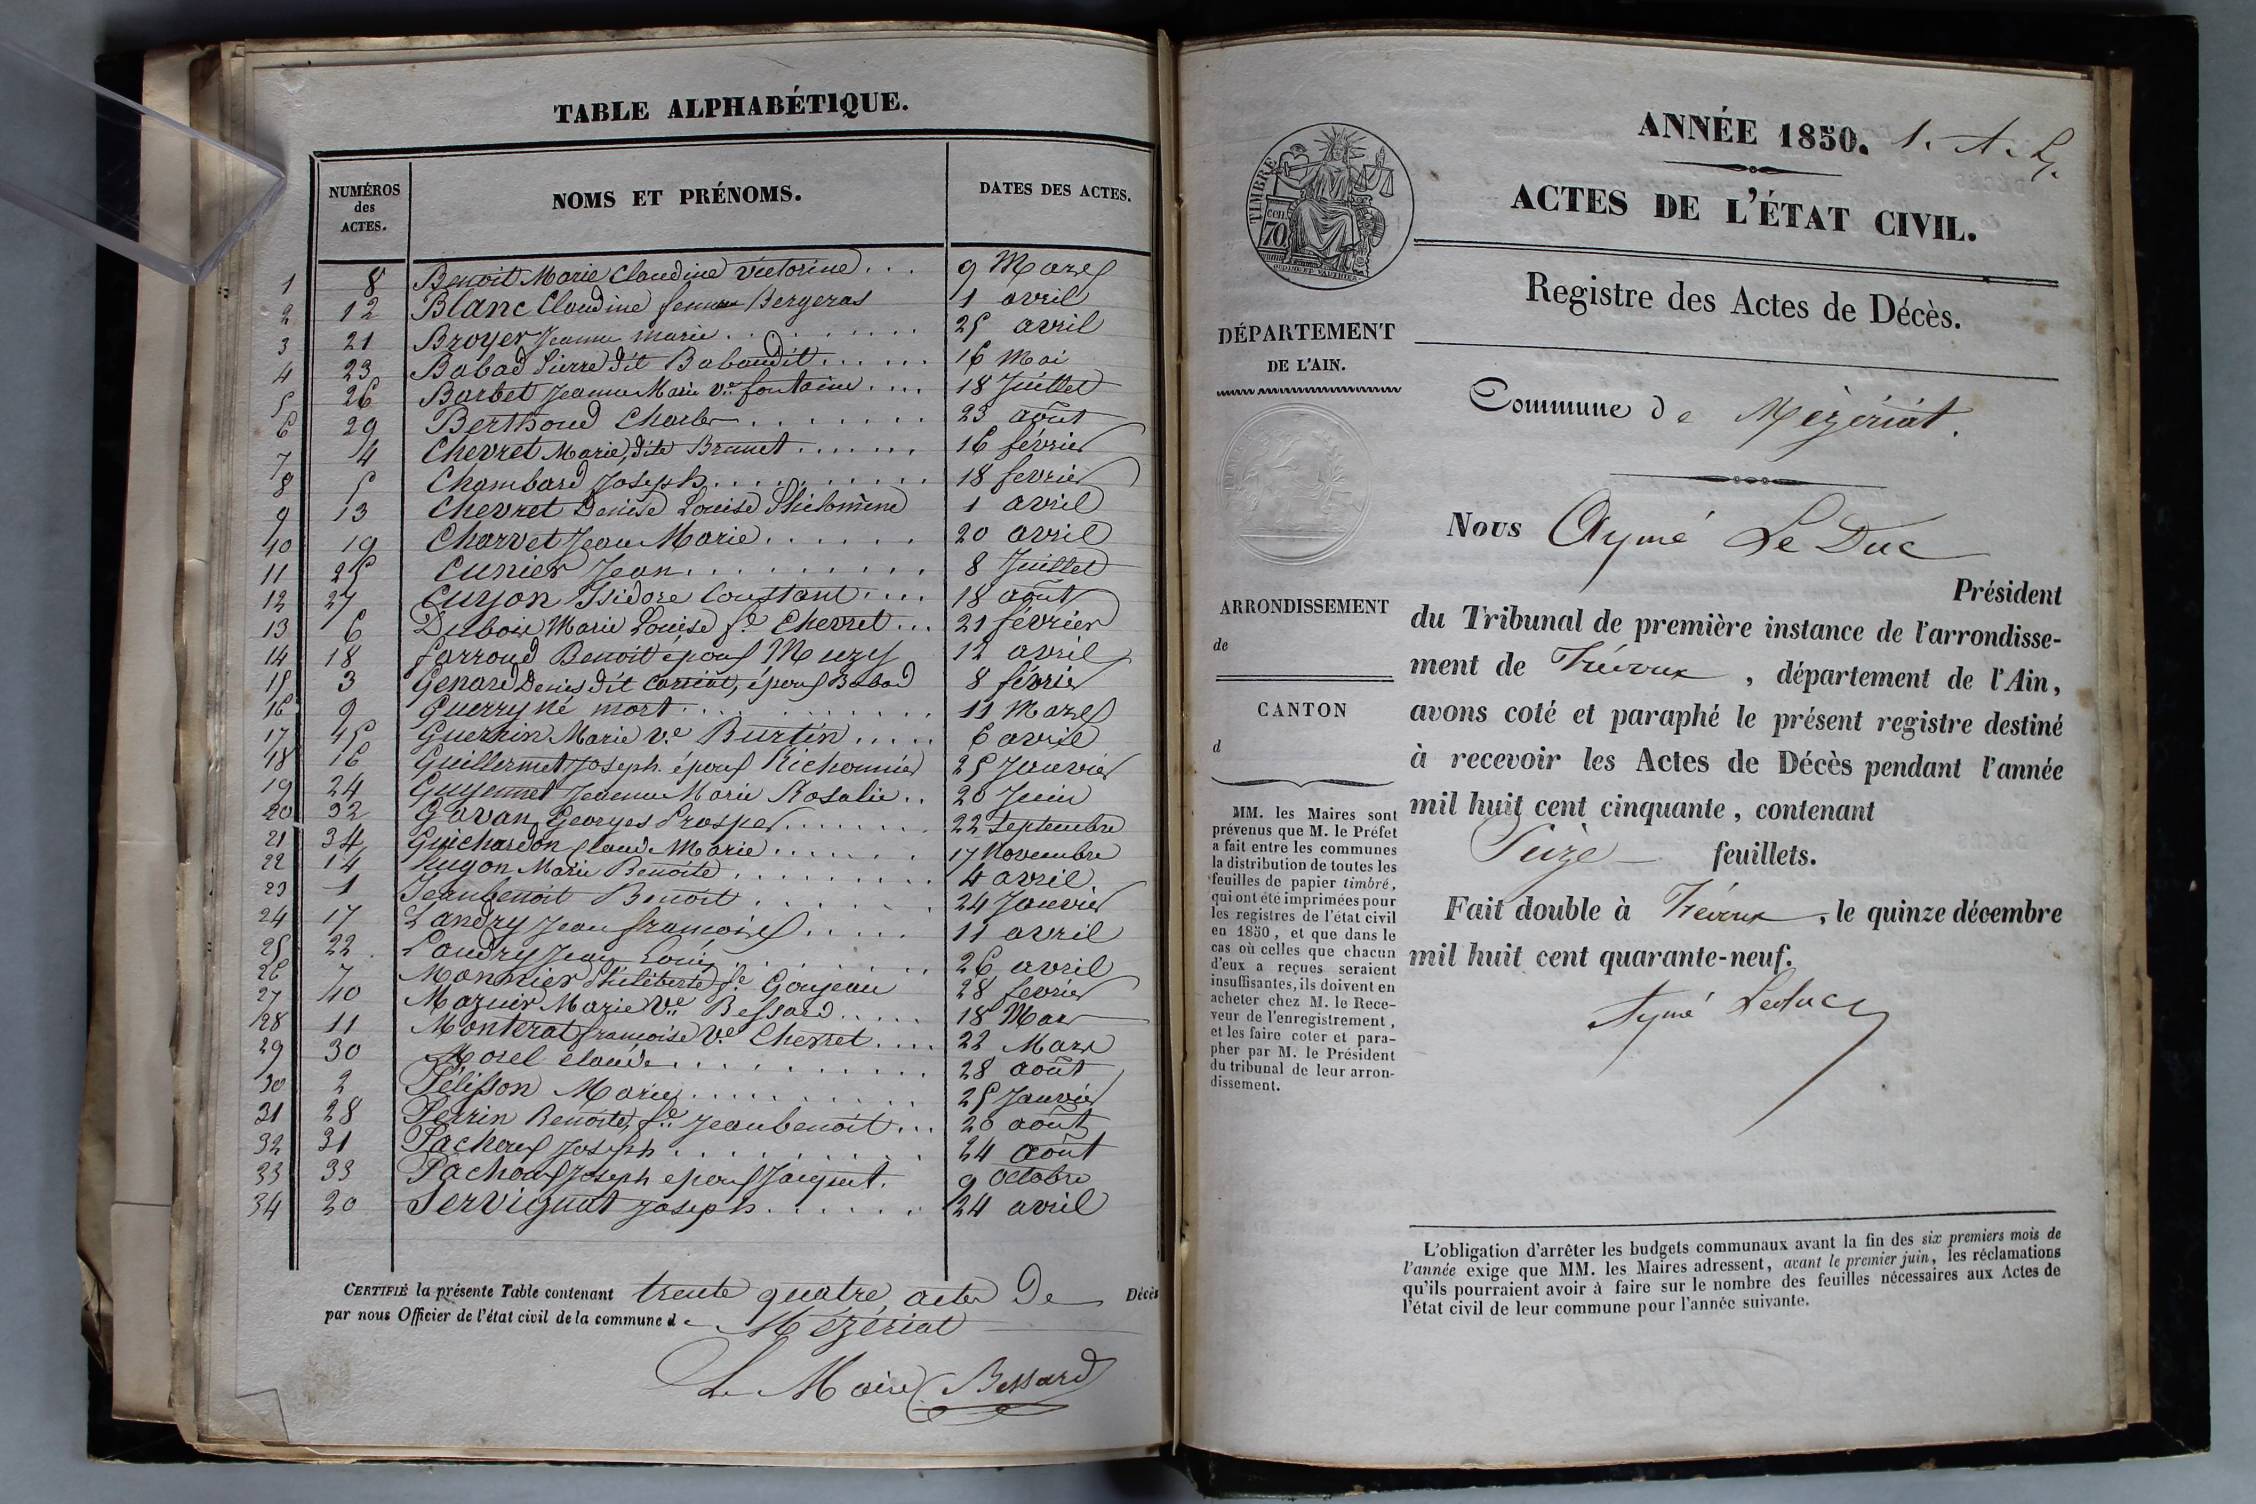 TABLE ALPHABÉTIQUE.
NUMÉROS des ACTES. NOMS ET PRÉNOMS. DATES DES ACTES.
1 8 Benoit Marie Claudine Victorine... 9 Mars
2 12 Blanc Claudine femme Bergeras 1 avril
3 21 Broyer Jeanne Marie 25 avril
4 23 Babad Pierre dit Babaudit 16 Mai
5 26 Barbet Jeanne Marie Ve fontaine 18 Juillet
6 29 Berthoud Charles 23 août
7 4 Chevret Marie, dite Brunet 16 février
8 5 Chambard Joseph 18 fevrier
9 13 Chevret Denise Louise Philomène 1 avril
10 19 Charvet Jean Marie 20 avril
11 25 Cunier Jean 8 Juillet
12 27 Curson Isidore Constant 18 août
13 6 Dubois Marie Louise fe Chevret... 21 février
14 18 farroud Benoit époux Muzy 12 avril
15 3 Genard Denis dit époux Babad 8 février
16 9 Guerry né mort 11 Mars
17 15 Guerrin Marie Ve Burtin 6 avril
18 16 Guillermet Joseph époux Richonnier 25 Janvier
19 24 Guyennet Jeanne Marie Rosalie.. 20 Juin
20 32 Gavan Georges Prosper 22 septembre
21 34 Guichardon Claude Marie 17 Novembre
22 14 hugon Marie Benoite 4 avril.
23 1 Jeanbenoit Benoit 24 Janvier
24 17 Landry Jean françois 11 avril
25 22 Landry Jean Louis 26 avril
26 7 Monnier Philiberte fe Goujeau 28 fevrier
27 10 Mazuir Marie Ve Bessard 18 Mars
28 11 Monterat françoise Ve Chevret 22 Mars
29 30 Morel claude 28 août
30 2 Pélisson Marie 25 Janvier
31 28 Perrin Benoite, fe Jeanbenoit... 20 août
32 31 Pachoux Joseph 24 août
33 33 Pachoux Joseph époux Jaiquet. 9 Octobre
34 20 Servignat Joseph 24 avril
CERTIFIÉ la présente Table contenant trente quatre actes De Décès
par nous Officier de l'état civil de la commune de Mézériat
Le Maire Bessard
ANNÉE 1850.
ACTES DE L'ÉTAT CIVIL.
TIMBRE
cen. 70
Registre des Actes de Décès.
DÉPARTEMENT
DE L'AIN.
Commune de Mézériat.
Nous Aymé Le Duc
Président
du Tribunal de première instance de l'arrondisse-
ment de Trévoux, département de l'Ain,
avons coté et paraphé le présent registre destiné
à recevoir les Actes de Décès pendant l'année
mil huit cent cinquante, contenant
Seize feuillets.
Fait double à Trévoux, le quinze décembre
mil huit cent quarante-neuf.
Aymé Leduc
ARRONDISSEMENT
de
CANTON
d
MM. les Maires sont
prévenus que M. le Préfet
a fait entre les communes
la distribution de toutes les
feuilles de papier timbré,
qui ont été imprimées pour
les registres de l'état civil
en 1850, et que dans le
cas où celles que chacun
d'eux a reçues seraient
insuffisantes, ils doivent en
acheter chez M. le Rece-
veur de l'enregistrement,
et les faire coter et para-
pher par M. le Président
du tribunal de leur arron-
dissement.
L'obligation d'arrêter les budgets communaux avant la fin des six premiers mois de
l'année exige que MM. les Maires adressent, avant le premier juin, les réclamations
qu'ils pourraient avoir à faire sur le nombre des feuilles nécessaires aux Actes de
l'état civil de leur commune pour l'année suivante.